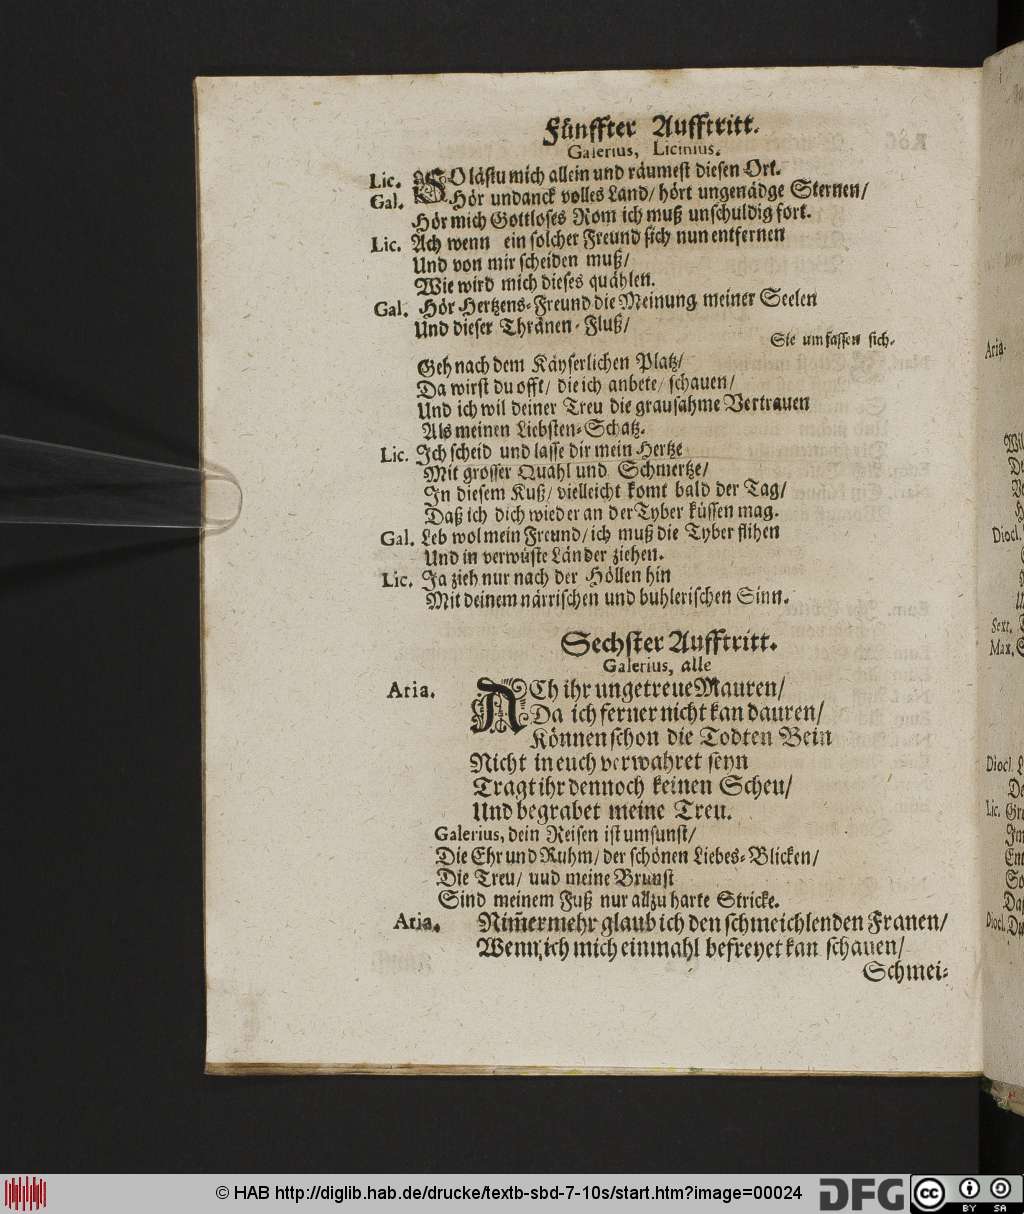 Fünffter Aufftritt.
Galerius, Licinius.
Lic. SO lästu mich allein und räumest diesen Ort.
Gal. Hör undanck volles Land/ hört ungenädge Sternen/
Hör mich Gottloses Rom ich muß unschuldig fort.
Lic. Ach wenn ein solcher Freund sich nun entfernen
Und von mir scheiden muß/
Wie wird mich dieses quählen.
Gal. Hör Hertzens-Freund die Meinung meiner Seelen
Und dieser Thränen-Fluß/
Sie umfassen sich.
Geh nach dem Käyserlichen Platz/
Da wirst du offt/ die ich anbete/ schauen/
Und ich wil deiner Treu die grausahme Vertrauen
Als meinen Liebsten-Schatz.
Lic. Ich scheid und lasse dir mein Hertze
Mit grosser Quahl und Schmertze/
In diesem Kuß/ vielleicht komt bald der Tag/
Daß ich dich wieder an der Tyber küssen mag.
Gal. Leb wol mein Freund/ ich muß die Tyber flihen
Und in verwüste Länder ziehen.
Lic. Ja zieh nur nach der Höllen hin
Mit deinem närrischen und buhlerischen Sinn.
Sechster Aufftritt.
Galerius, alle
Aria. ACh ihr ungetreue Mauren/
Da ich ferner nicht kan dauren/
Können schon die Todten Bein
Nicht in euch verwahret seyn
Tragt ihr dennoch keinen Scheu/
Und begrabet meine Treu.
Galerius, dein Reisen ist umsunst/
Die Ehr und Ruhm/ der schönen Liebes-Blicken/
Die Treu/ uud meine Brunst
Sind meinem Fuß nur allzu harte Stricke.
Aria. Nim̃ermehr glaub ich den schmeichlenden Franen/
Wenn ich mich einmahl befreyet kan schauen/
Schmei-
Aria.
Diocl.
Sext.
Max.
Diocl.
Lic.
Diocl.
© HAB http://diglib.hab.de/drucke/textb-sbd-7-10s/start.htm?image=00024
DFG
cc BY SA